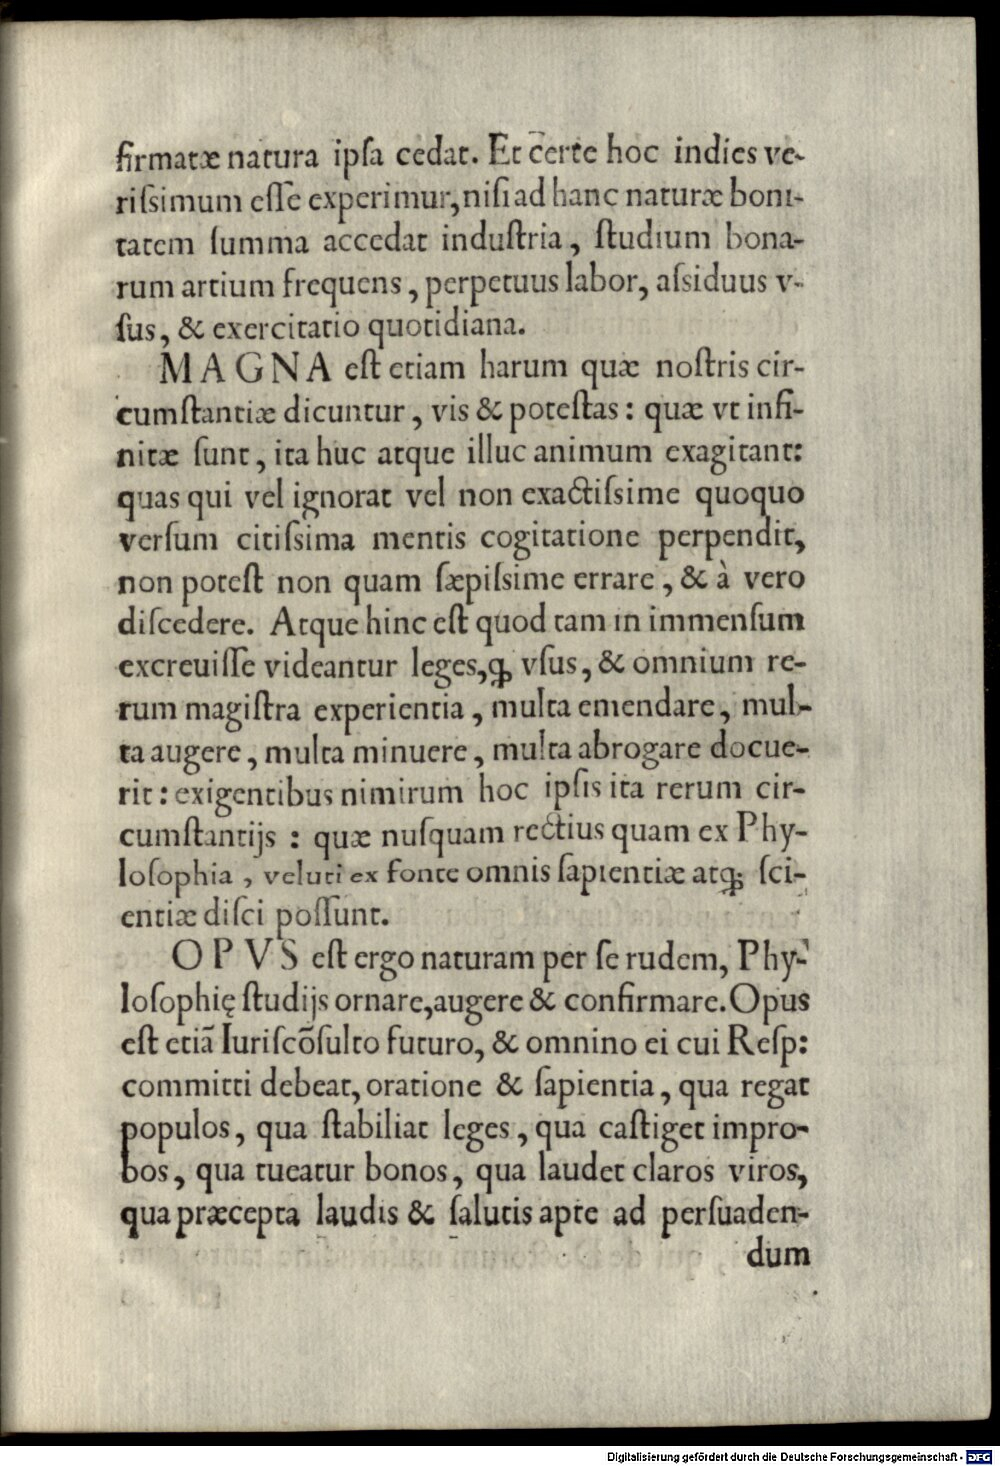 firmatæ natura ipſa cedat. Et certe hoc indies ve-
riſsimum eſſe experimur, niſi ad hanc naturæ boni-
tatem ſumma accedat induſtria, ſtudium bona-
rum artium frequens, perpetuus labor, aſsiduus v-
ſus, & exercitatio quotidiana.
MAGNA eſt etiam harum quæ noſtris cir-
cumſtantiæ dicuntur, vis & poteſtas: quæ vt infi-
nitæ ſunt, ita huc atque illuc animum exagitant:
quas qui vel ignorat vel non exactiſsime quoquo
verſum citiſsima mentis cogitatione perpendit,
non poteſt non quam ſæpiſsime errare, & à vero
diſcedere. Atque hinc eſt quod tam in immenſum
excreuiſſe videantur leges, ꝙ vſus, & omnium re-
rum magiſtra experientia, multa emendare, mul-
ta augere, multa minuere, multa abrogare docue-
rit: exigentibus nimirum hoc ipſis ita rerum cir-
cumſtantijs: quæ nuſquam rectius quam ex Phy-
loſophia, veluti ex fonte omnis ſapientiæ atq; ſci-
entiæ diſci poſſunt.
OPVS eſt ergo naturam per ſe rudem, Phy-
loſophię ſtudijs ornare, augere & confirmare. Opus
eſt etiã Iuriſcõſulto futuro, & omnino ei cui Reſp:
committi debeat, oratione & ſapientia, qua regat
populos, qua ſtabiliat leges, qua caſtiget impro-
bos, qua tueatur bonos, qua laudet claros viros,
qua præcepta laudis & ſalutis apte ad perſuaden-
dum
Digitalisierung gefördert durch die Deutsche Forschungsgemeinschaft - DFG